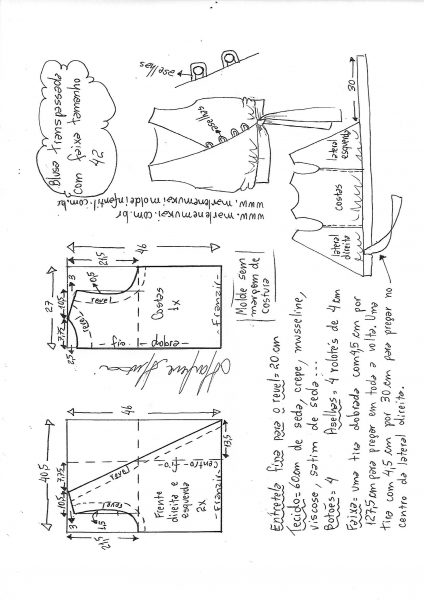 Blusa transpassada
com faixa tamanho
42
aselhas
aselhas
www.marlenemukai.com.br
www.marlenemukaimoldeinfantil.com.br
30
lateral
esquerda
costas
lateral
direita
Molde sem
margem de
costura
27
7,75
10,5
3
2,5
0,5
21,5
46
revel
revel
Costas
1x
fio
dobra
Franzir
40,5
7,75
10,5
3
1,5
21,5
46
13,5
revel
revel
Frente
direita e
esquerda
2x
centro
fio
Franzir
Entretela fina para o revel = 20 cm
Tecido = 60cm de seda, crepe, musseline,
viscose, satim de seda...
Botões = 4 Aselhas = 4 rolotês de 4 cm
Faixa = uma tira dobrada com 4,5 cm por
127,5 cm para pregar em toda a volta. Uma
tira com 4,5 cm por 30 cm para pregar no
centro da lateral direita.